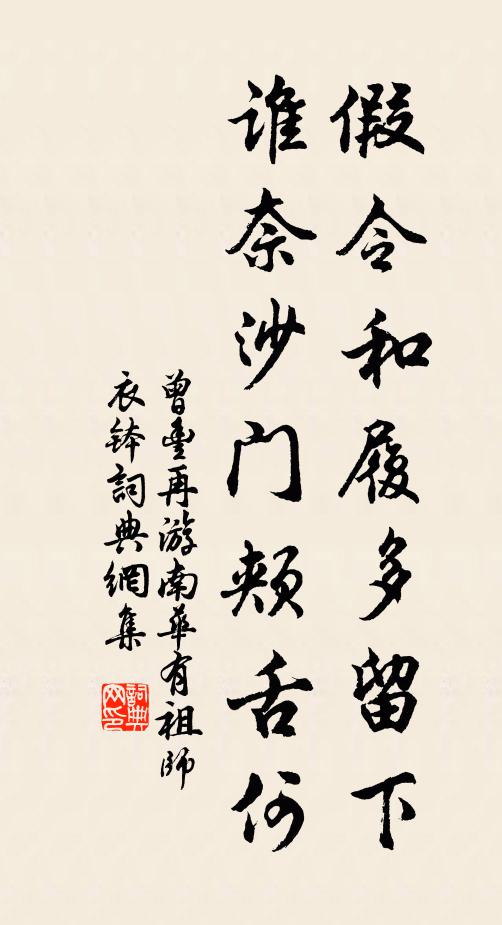 假令和履多留下
谁奈沙门颊舌何
曾丰再游南华有祖师
衣钵词典网集
词典网印